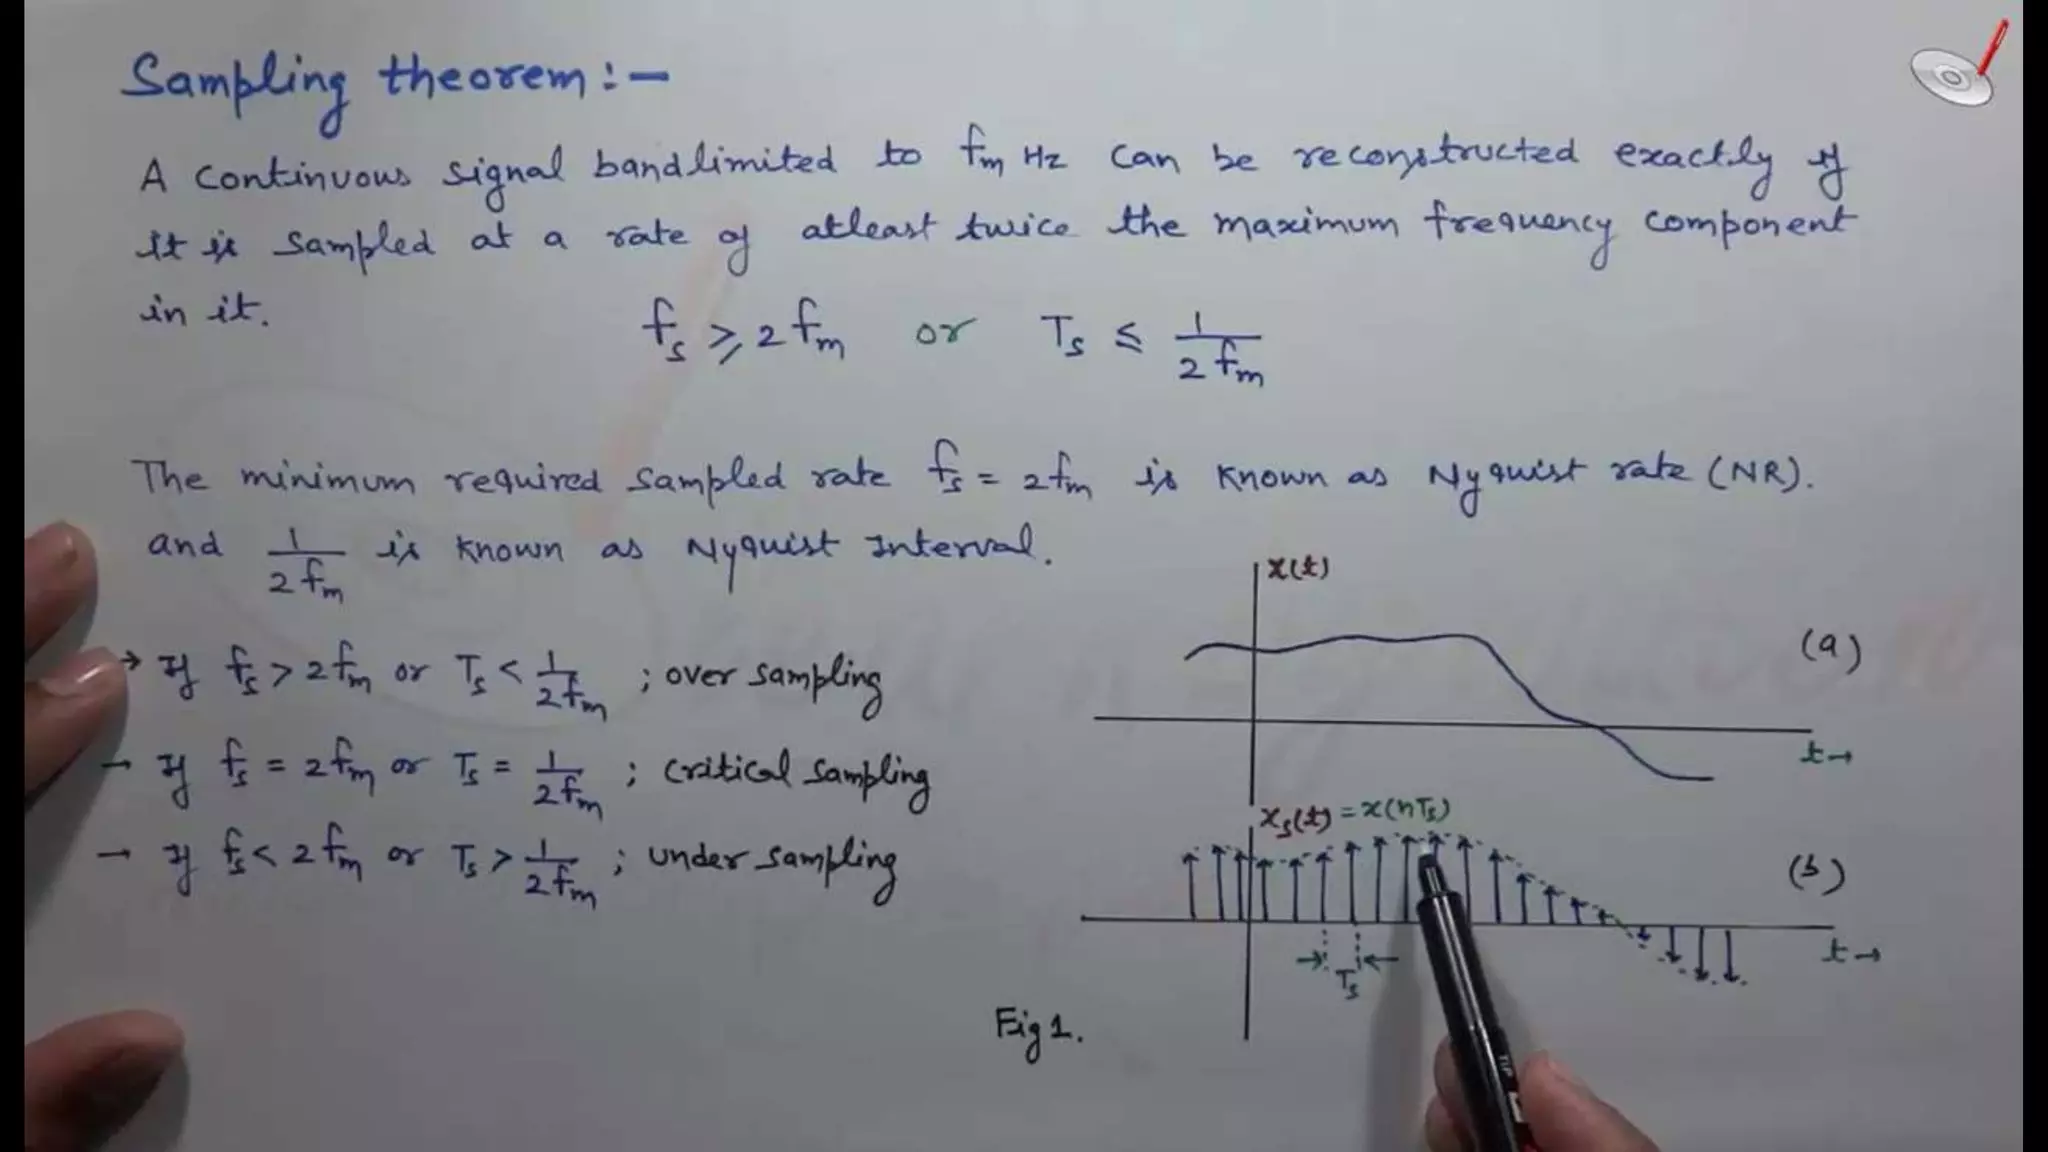 Sampling theorem:-
A continuous signal bandlimited to fm Hz can be reconstructed exactly if
it is sampled at a rate of atleast twice the maximum frequency component
in it.
fs ≥ 2fm or Ts ≤ 1/2fm
The minimum required sampled rate fs = 2fm is known as Nyquist rate (NR).
and 1/2fm is known as Nyquist Interval.
→ If fs > 2fm or Ts < 1/2fm ; over sampling
→ If fs = 2fm or Ts = 1/2fm ; critical sampling
→ If fs < 2fm or Ts > 1/2fm ; under sampling
x(t)
(a)
t→
xs(t) = x(nTs)
(b)
t→
Ts
Fig 1.
TIP